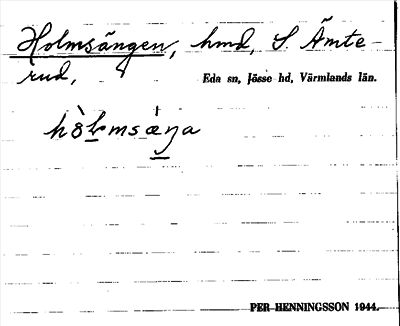 Holmsängen, hmd, S. Ämte-
rud,
Eda sn, Jösse hd, Värmlands län.
hòlmsæ̀ŋa
PER HENNINGSSON 1944.